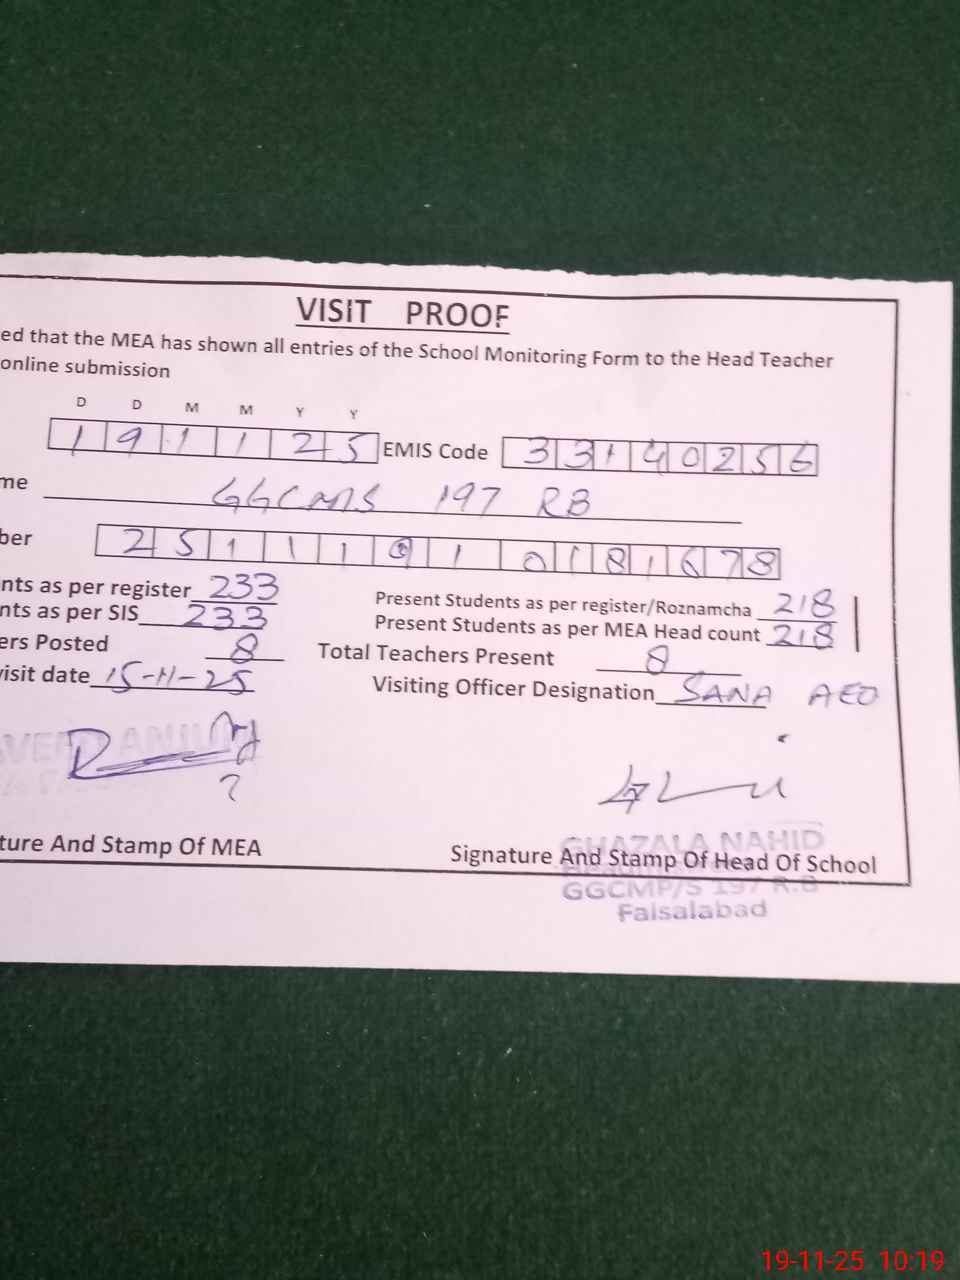 VISIT PROOF
ed that the MEA has shown all entries of the School Monitoring Form to the Head Teacher
online submission
D D M M Y Y
1 9 1 1 2 5 EMIS Code 3 3 1 4 0 2 5 6
me GGCMS 197 RB
ber 2 5 1 1 1 9 1 0 1 8 1 6 7 8
nts as per register 233 Present Students as per register/Roznamcha 218
nts as per SIS 233 Present Students as per MEA Head count 218
ers Posted 8 Total Teachers Present 8
visit date 15-11-25 Visiting Officer Designation SANA AEO
ture And Stamp Of MEA Signature And Stamp Of Head Of School
GHAZALA NAHID
GGCMP/S 197 R.B
Faisalabad
19-11-25 10:19